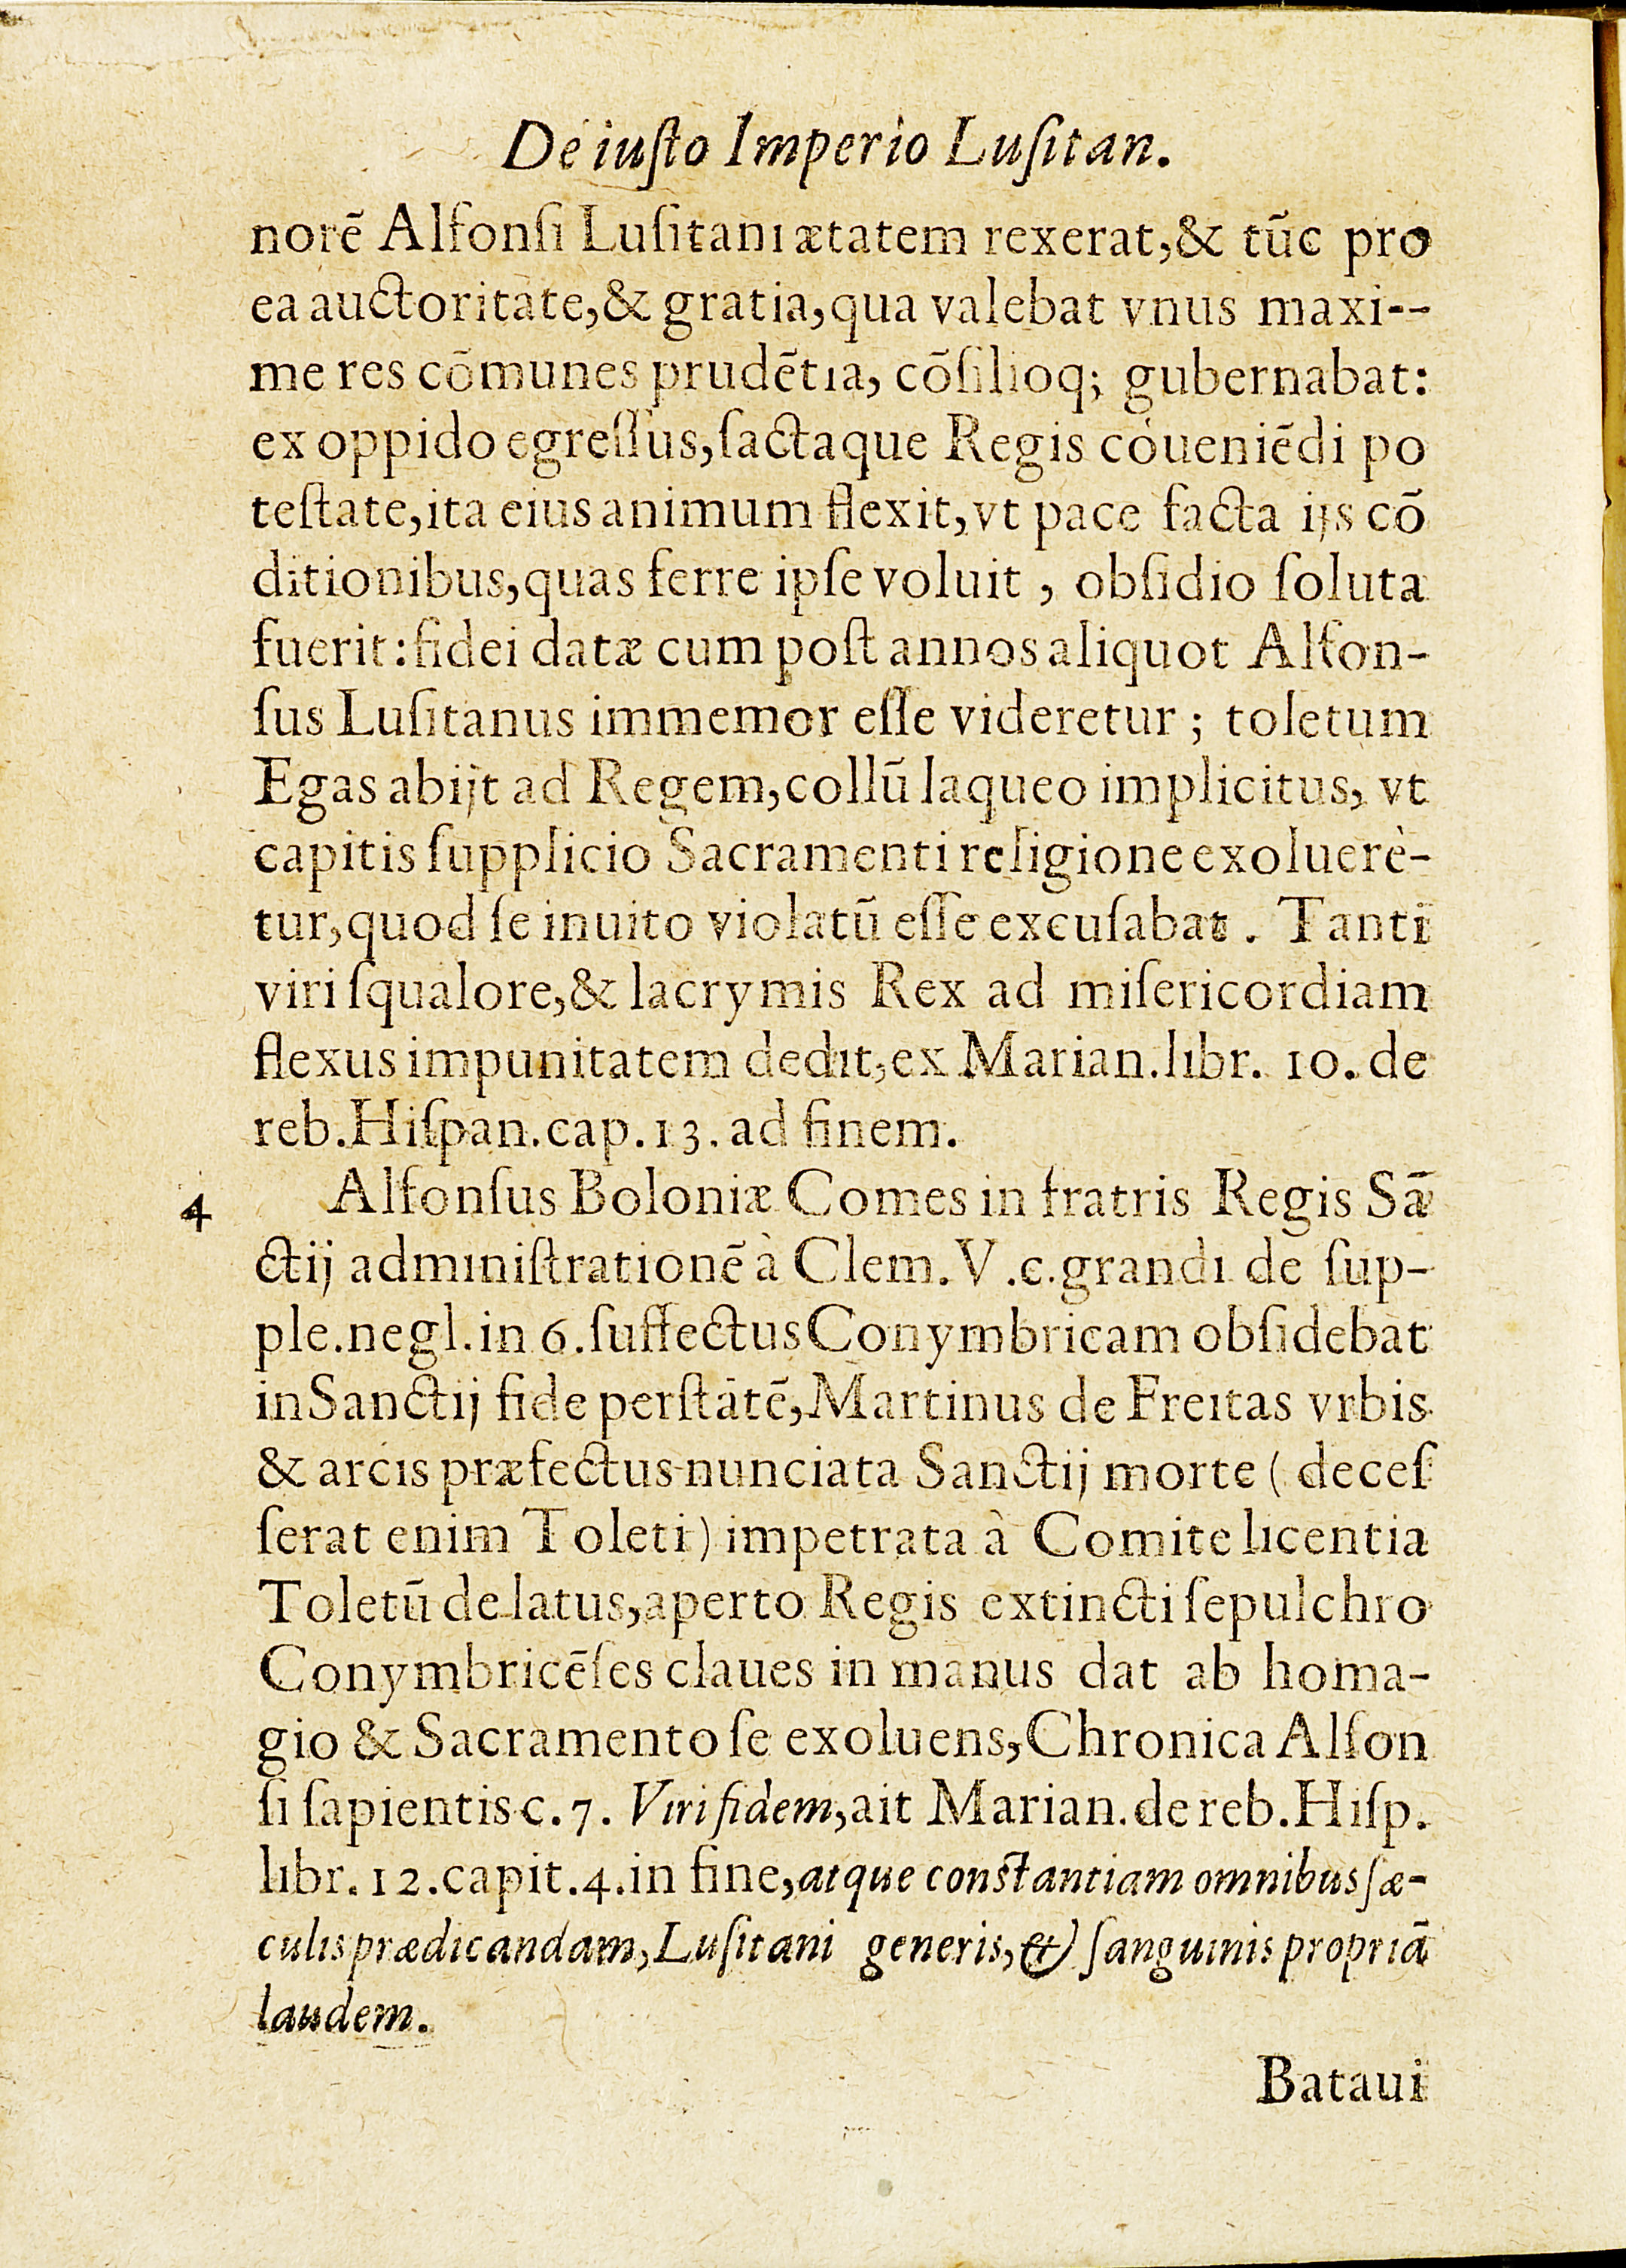 De iuſto Imperio Luſitan.
norẽ Alfonſi Luſitani ætatem rexerat,& tũc pro
ea auctoritate,& gratia,qua valebat vnus maxi--
me res cõmunes prudẽtia, cõſilioq; gubernabat:
ex oppido egreſſus,factaque Regis còueniẽdi po
teſtate,ita eius animum flexit,vt pace facta ijs cõ
ditionibus,quas ferre ipſe voluit , obſidio ſoluta
fuerit: fidei datæ cum poſt annos aliquot Alfon-
ſus Luſitanus immemor eſſe videretur ; toletum
Egas abijt ad Regem,collũ laqueo implicitus, vt
capitis ſupplicio Sacramenti religione exoluerè-
tur,quod ſe inuito violatũ eſſe excuſabat . Tanti
viri ſqualore,& lacrymis Rex ad miſericordiam
flexus impunitatem dedit,ex Marian.libr. 10. de
reb.Hiſpan.cap.13. ad finem.
4 Alfonſus Boloniæ Comes in fratris Regis Sã
ctij adminiſtrationẽ à Clem.V .c.grandi de ſup-
ple.negl.in 6.ſuffectus Conymbricam obſidebat
in Sanctij fide perſtãtẽ,Martinus de Freitas vrbis
& arcis præfectus nunciata Sanctij morte ( deceſ
ſerat enim Toleti) impetrata à Comite licentia
Toletũ delatus,aperto Regis extincti ſepulchro
Conymbricẽſes claues in manus dat ab homa-
gio & Sacramento ſe exoluens,Chronica Alfon
ſi ſapientis c.7. Viri fidem,ait Marian.de reb.Hiſp.
libr.12.capit.4.in fine,atque conſtantiam omnibus ſæ-
culis prædicandam,Luſitani generis,& ſanguinis propriã
laudem.
Bataui